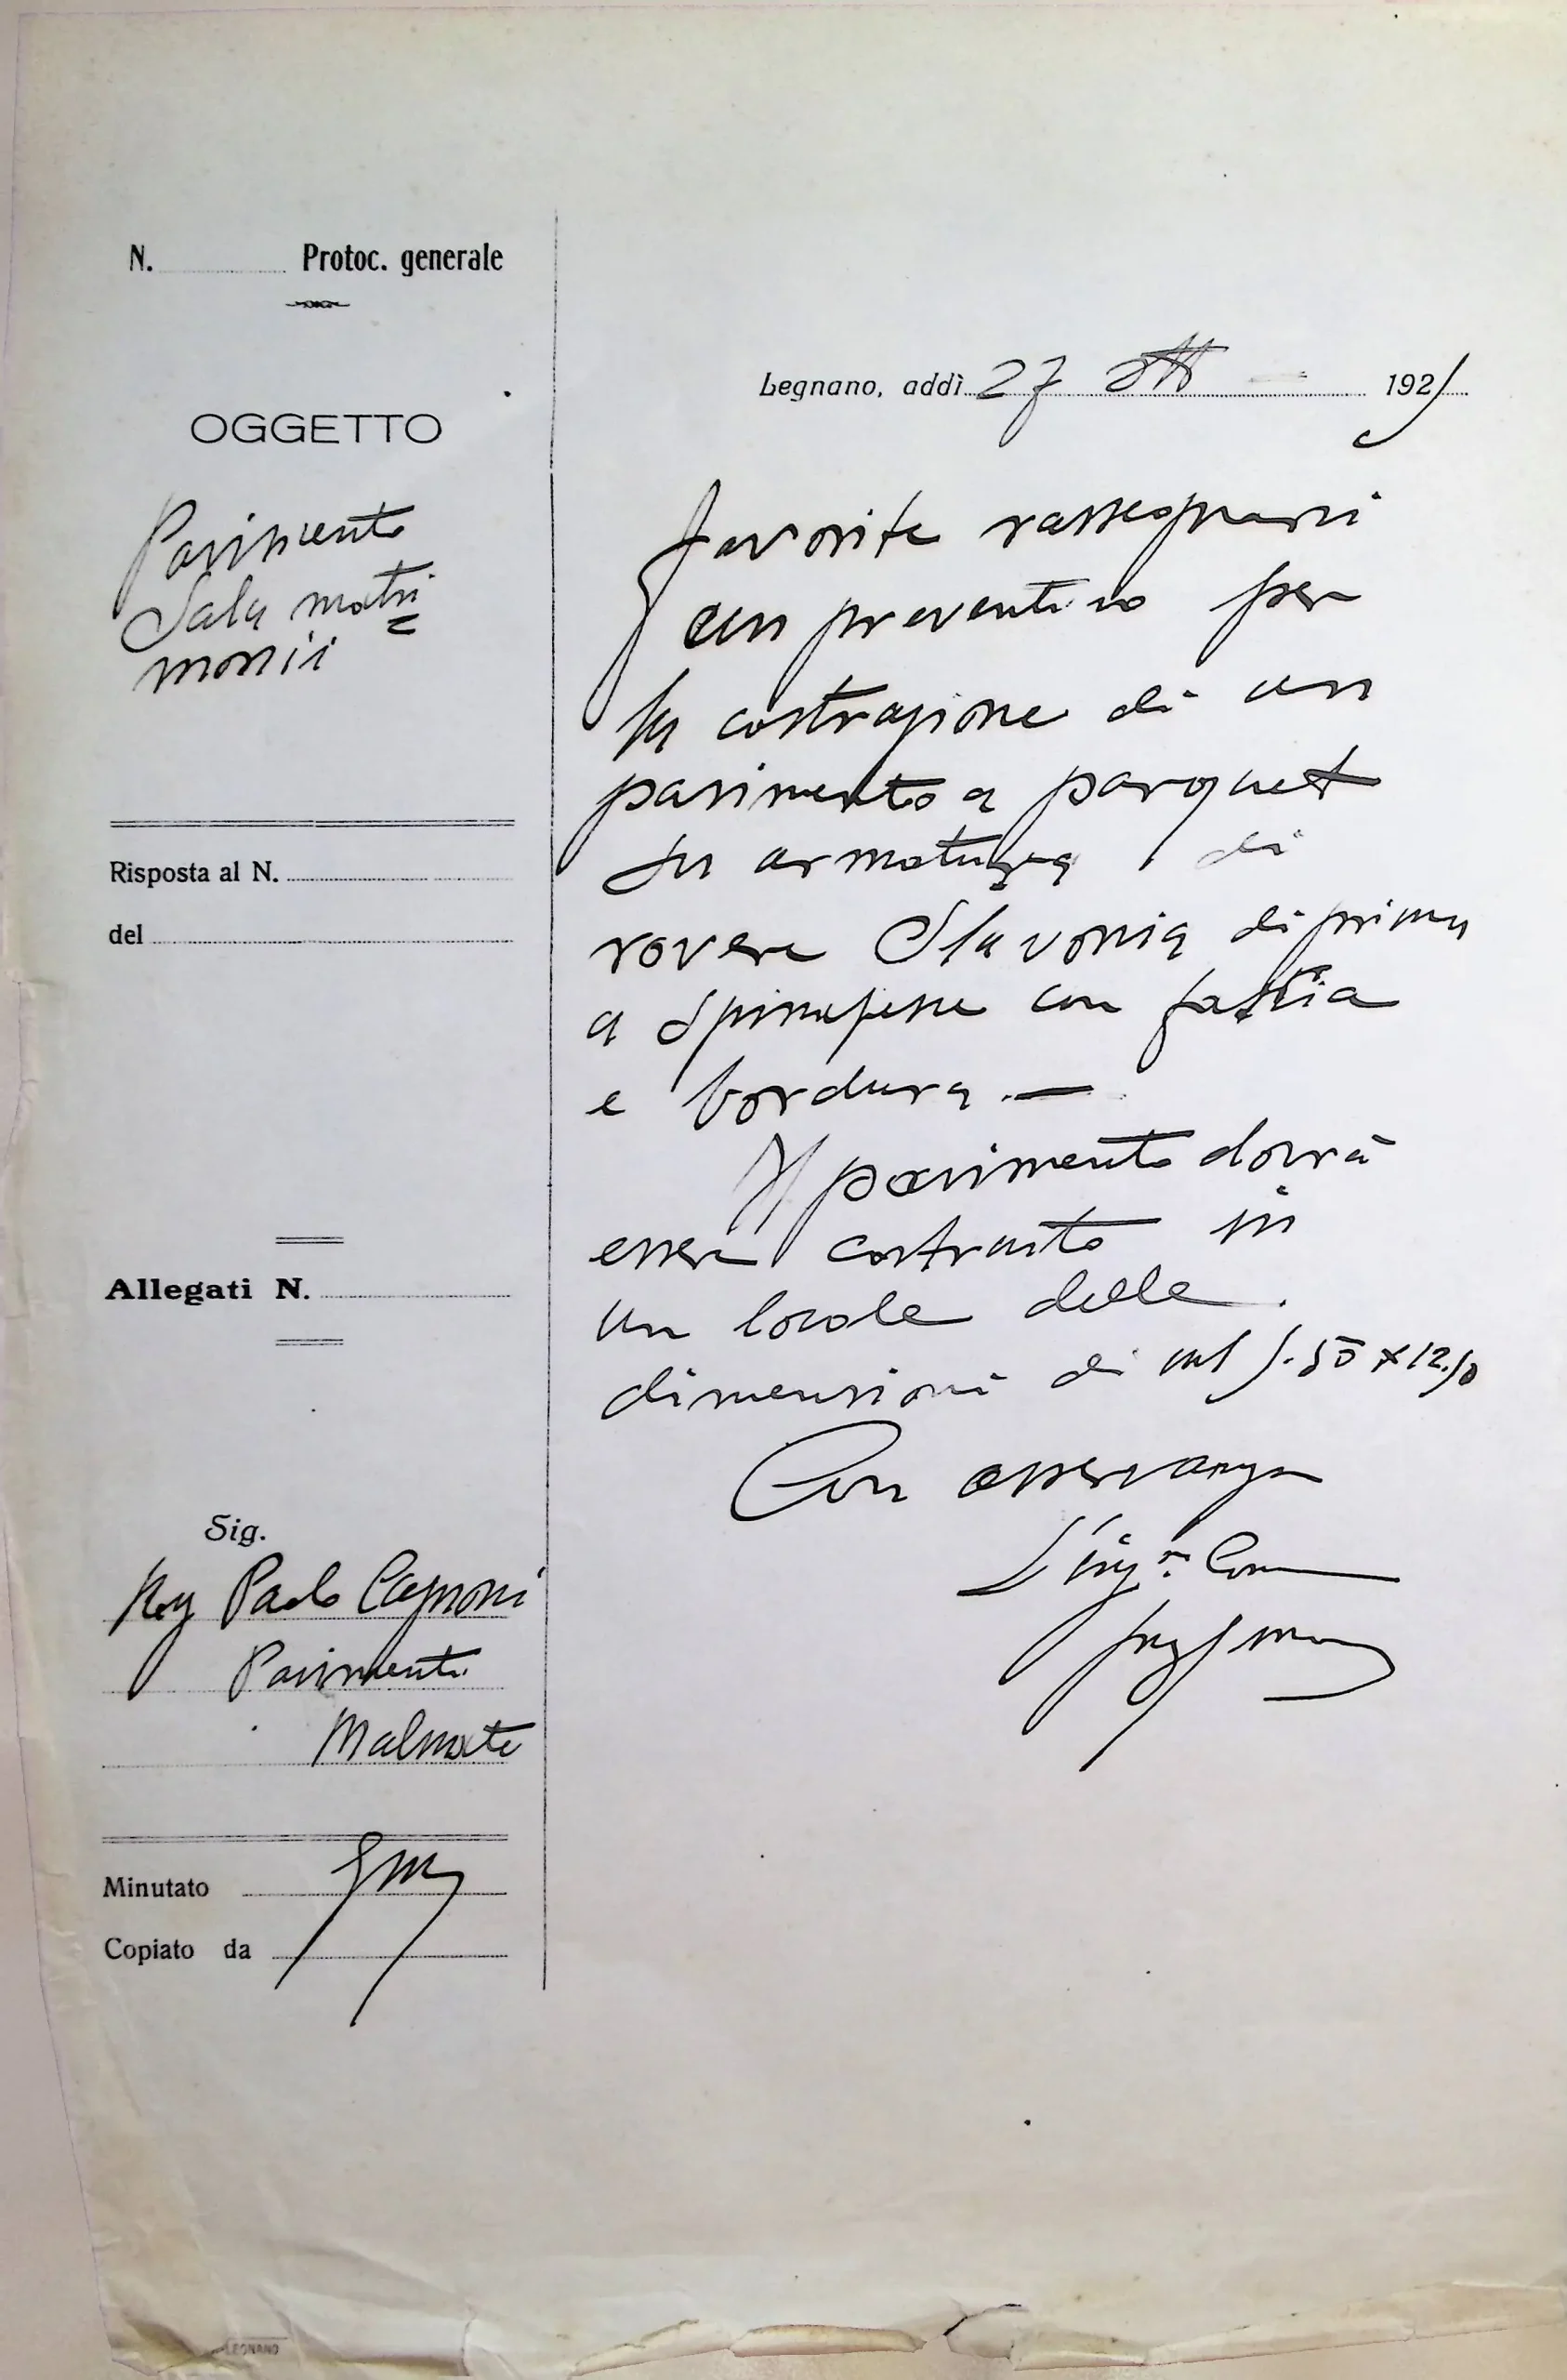 N. Protoc. generale
OGGETTO
Pavimento
Sala matri
monii
Risposta al N.
del
Allegati N.
Sig.
Rag Paolo Cagnoni
Pavimenti
Malnate
Minutato
Copiato da
Legnano, addì 27 Ott 1925
favorite rassegnarci
un preventivo per
la costruzione di un
pavimento a parquet
su armatura, di
rovere Slavonia di prima
a spinapesce con fascia
e bordura. —
Il pavimento dovrà
essere costruito in
un locale delle
dimensioni di ml 5.50 x 12.50
Con osservanza
L'ing.re Com
LEGNANO